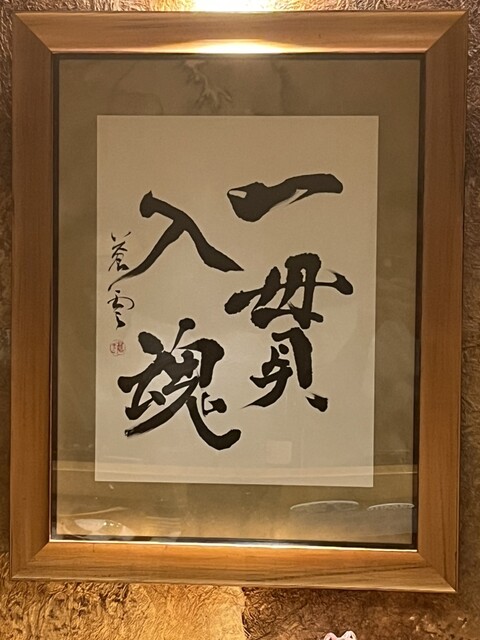 一貫
入魂
蒼雲